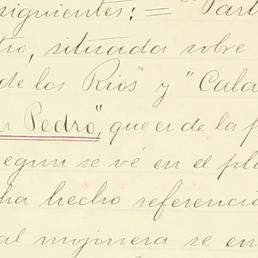 siguientes: = "Part
tro, situada sobre
de los Rios" y "Cala
n Pedro", que es de la p
segun se vé en el pla
ha hecho referenci
al mojonera se en